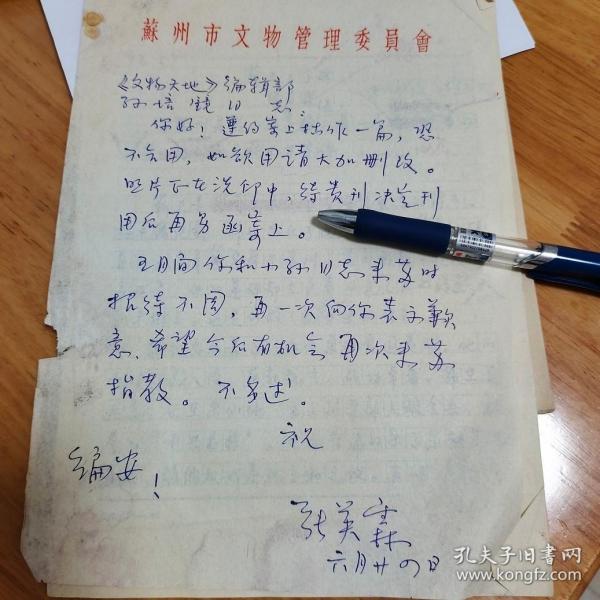 蘇州市文物管理委員會
《文物天地》编辑部
孙培镜同志：
你好！遵约寄上拙作一篇，恐
不合用，如欲用请大加删改。
照片正在洗印中，待贵刊决定刊
用后再另函寄上。
五月间你和小孙同志来苏时
招待不周，再一次向你表示歉
意，希望今后有机会再次来苏
指教。不多述。
祝
编安！
张英霖
六月廿四日
孔夫子旧书网
www.kongfz.com